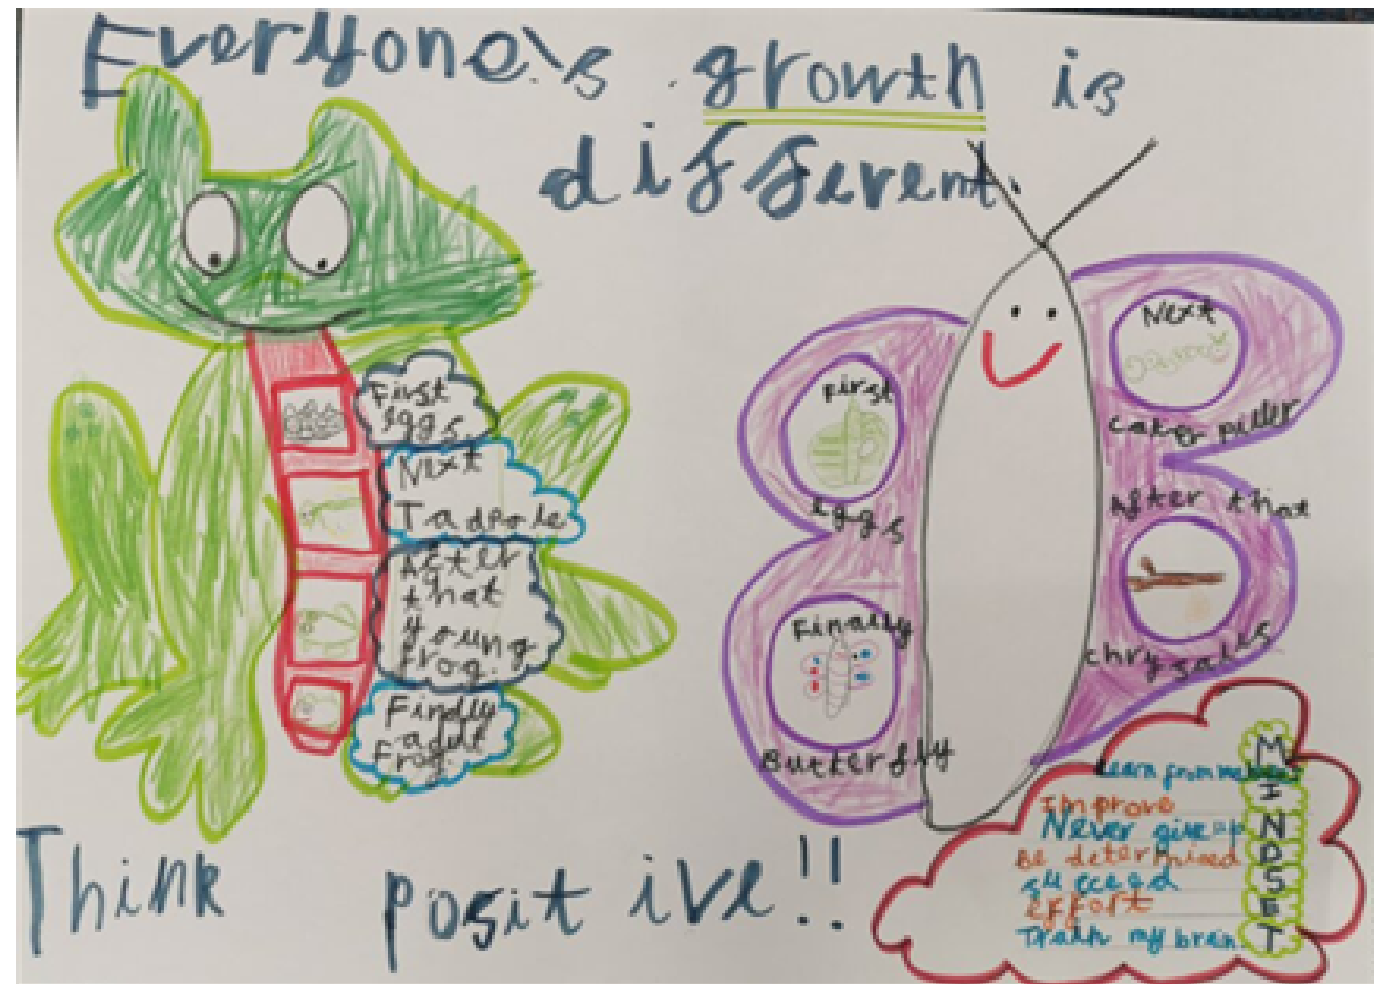 Everyone's growth is
different.
First
Eggs
Next
Tadpole
After
that
young
frog.
Finally
adult
Frog.
First
Eggs
Next
Cater piller
After that
chrysales
Finally
Butterfly
Learn from
Improve
Never give up
Be determined
succeed
effort
Train my brain
M
I
N
D
S
E
T
Think positive!!